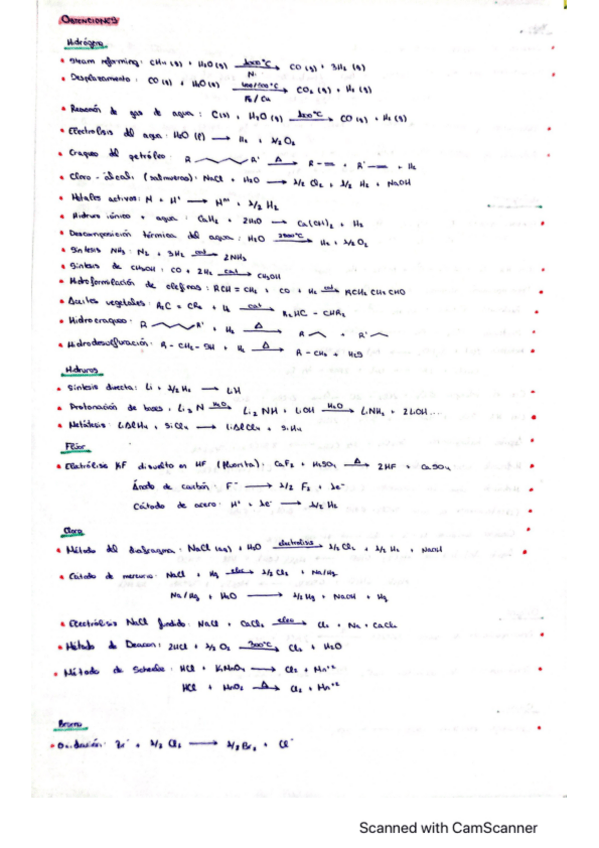 OBTENCIONES
Hidrógeno
• Steam reforming: CH4 (g) + H2O (g) —1000°C/Ni→ CO (g) + 3H2 (g)
• Desplazamiento: CO (g) + H2O (g) —400/500°C Fe/Cu→ CO2 (g) + H2 (g)
• Reacción de gas de agua: C(s) + H2O (g) —1000°C→ CO (g) + H2 (g)
• Electrólisis del agua: H2O (l) → H2 + 1/2 O2
• Craqueo del petróleo: R R' —Δ→ R + R' + H2
• Cloro-álcali (salmueras): NaCl + H2O → 1/2 Cl2 + 1/2 H2 + NaOH
• Metales activos: M + H+ → M+n + 1/2 H2
• Hidruro iónico + agua: CaH2 + 2H2O → Ca(OH)2 + H2
• Descomposición térmica del agua: H2O → H2 + 1/2 O2
• Síntesis NH3: N2 + 3H2 —cat→ 2NH3
• Síntesis de CH3OH: CO + 2H2 —cat→ CH3OH
• Hidroformilación de olefinas: RCH = CH2 + CO + H2 —cat→ RCH2 CH2 CHO
• Aceites vegetales: R2C = CR2 + H2 —cat→ R2HC - CHR2
• Hidrocraqueo: R R' + H2 —Δ→ R + R'
• Hidrodesulfuración: R - CH2 - SH + H2 —Δ→ R - CH3 + H2S
Hidruros
• Síntesis directa: Li + 1/2 H2 → LiH
• Protonación de bases: Li3N —H2O→ Li2NH + LiOH —H2O→ LiNH2 + 2LiOH...
• Metátesis: LiAlH4 + SiCl4 → LiAlCl4 + SiH4
Flúor
• Electrólisis KF disuelto en HF (fluorita): CaF2 + H2SO4 —Δ→ 2HF + CaSO4
Ánodo de carbón: F- → 1/2 F2 + 1e-
Cátodo de acero: H+ + 1e- → 1/2 H2
Cloro
• Método del diafragma: NaCl (aq) + H2O —electrolisis→ 1/2 Cl2 + 1/2 H2 + NaOH
• Cátodo de mercurio: NaCl + Hg —elec→ 1/2 Cl2 + Na/Hg
Na/Hg + H2O → 1/2 Hg + NaOH + Hg
• Electrólisis NaCl fundido: NaCl + CaCl2 —elec→ Cl2 + Na + CaCl2
• Método de Deacon: 2HCl + 1/2 O2 —300°C→ Cl2 + H2O
• Método de Scheele: HCl + KMnO4 → Cl2 + Mn+2
HCl + MnO2 —Δ→ Cl2 + Mn+2
Bromo
• Oxidación: Br- + 1/2 Cl2 → 1/2 Br2 + Cl-
Scanned with CamScanner